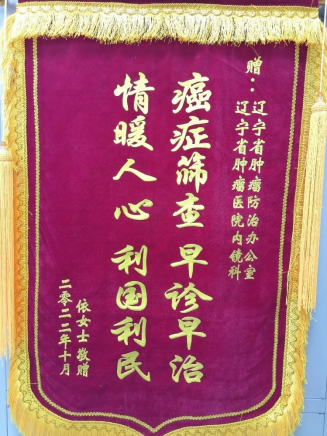 赠：辽宁省肿瘤防治办公室
辽宁省肿瘤医院内镜科
癌症筛查 早诊早治
情暖人心 利国利民
依女士敬赠
二零二二年十月